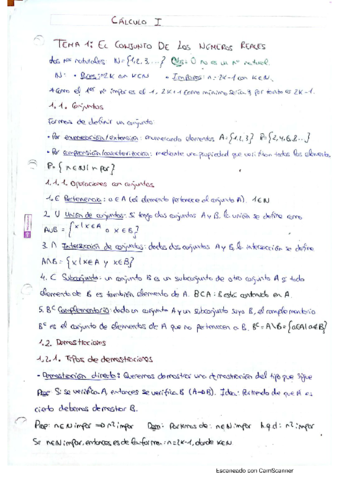 CÁLCULO I
TEMA 1: EL CONJUNTO DE LOS NÚMEROS REALES
Los nº naturales: N={1,2,3,...} Obs: 0 no es un nº natural.
N: • Pares: 2k con k∈N • Impares: n=2k-1 con k∈N,
*Como el 1er nº impar es el 1, 2k+1 como mínimo sería 3 por tanto es 2k-1.
1.1. Conjuntos
Formas de definir un conjunto:
• Por enumeración/extensión: enumerando elementos A={1,2,3} P={2,4,6,8...}
• Por comprensión/característica: mediante una propiedad que verifican todos los elementos
P={n∈N | n par}
1.1.1 Operaciones con conjuntos
1. ∈ Pertenencia: a∈A (el elemento pertenece al conjunto A). 1∈N
2. U Unión de conjuntos: Si tengo dos conjuntos A y B, la unión se define como
AUB = {x | x∈A o x∈B}
3. ∩ Intersección de conjuntos: dados dos conjuntos A y B, la intersección se define
A∩B = {x | x∈A y x∈B}
4. ⊂ Subconjunto: un conjunto B es un subconjunto de otro conjunto A si todo
elemento de B es también elemento de A. B⊂A: B está contenido en A
5. Bᶜ Complementario: dado un conjunto A y un subconjunto suyo B, el complementario
Bᶜ es el conjunto de elementos de A que no pertenecen a B. Bᶜ=A\B={a∈A | a∉B}
1.2. Demostraciones
1.2.1. Tipos de demostraciones
• Demostración directo: Queremos demostrar una demostración del tipo que sigue
Prop: Si se verifica A entonces se verifica B (A⇒B). Idea: Partiendo de que A es
cierto debemos demostrar B.
Prop: n∈N impar ⇒ n² impar Dem: Partimos de: n∈N impar. h.q.d: n² impar
Si n∈N impar, entonces es de la forma: n=2k-1, donde k∈N
Escaneado con CamScanner